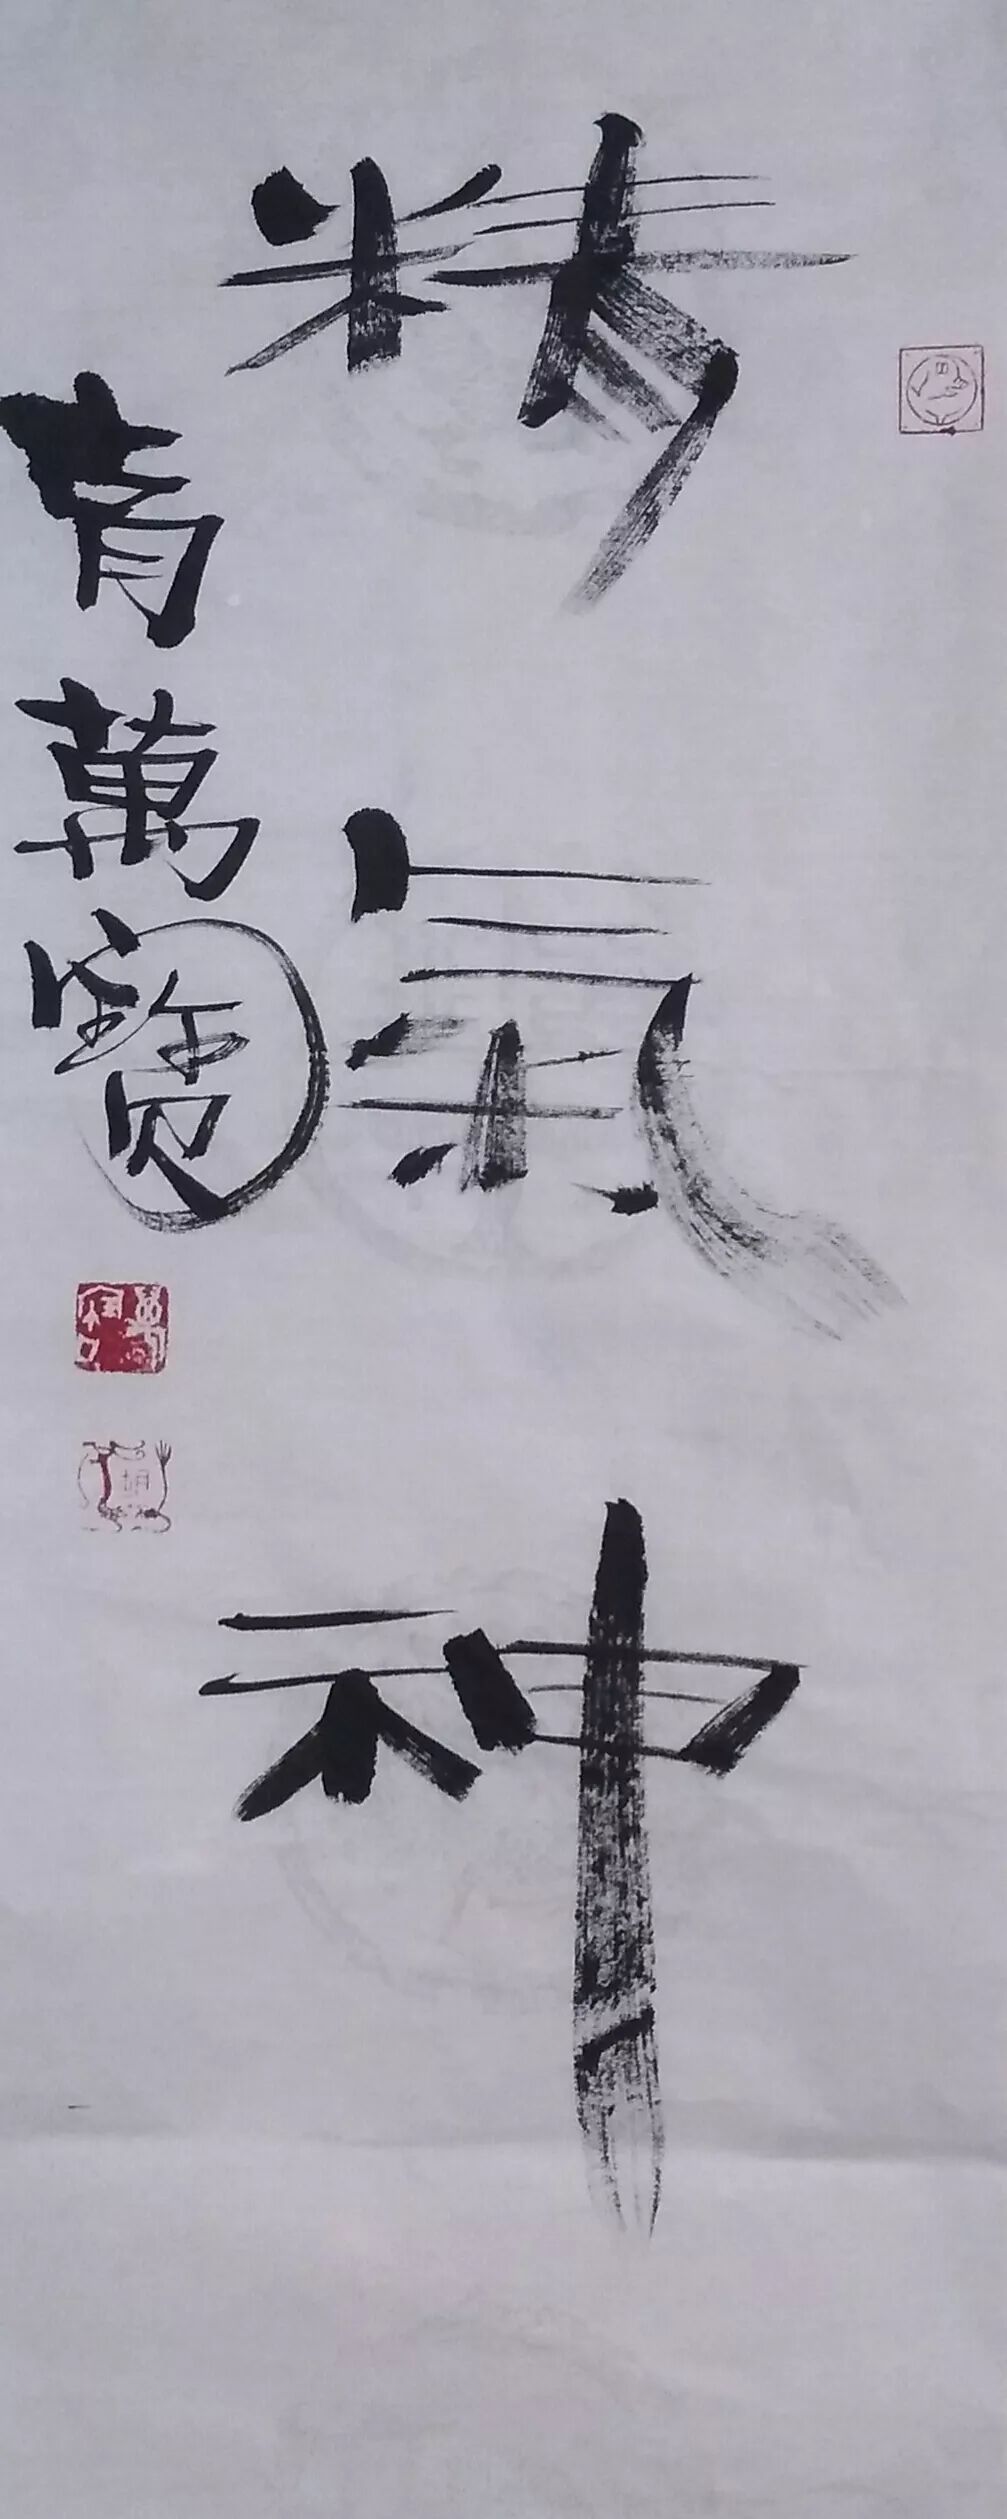 精氣神
青萬寶